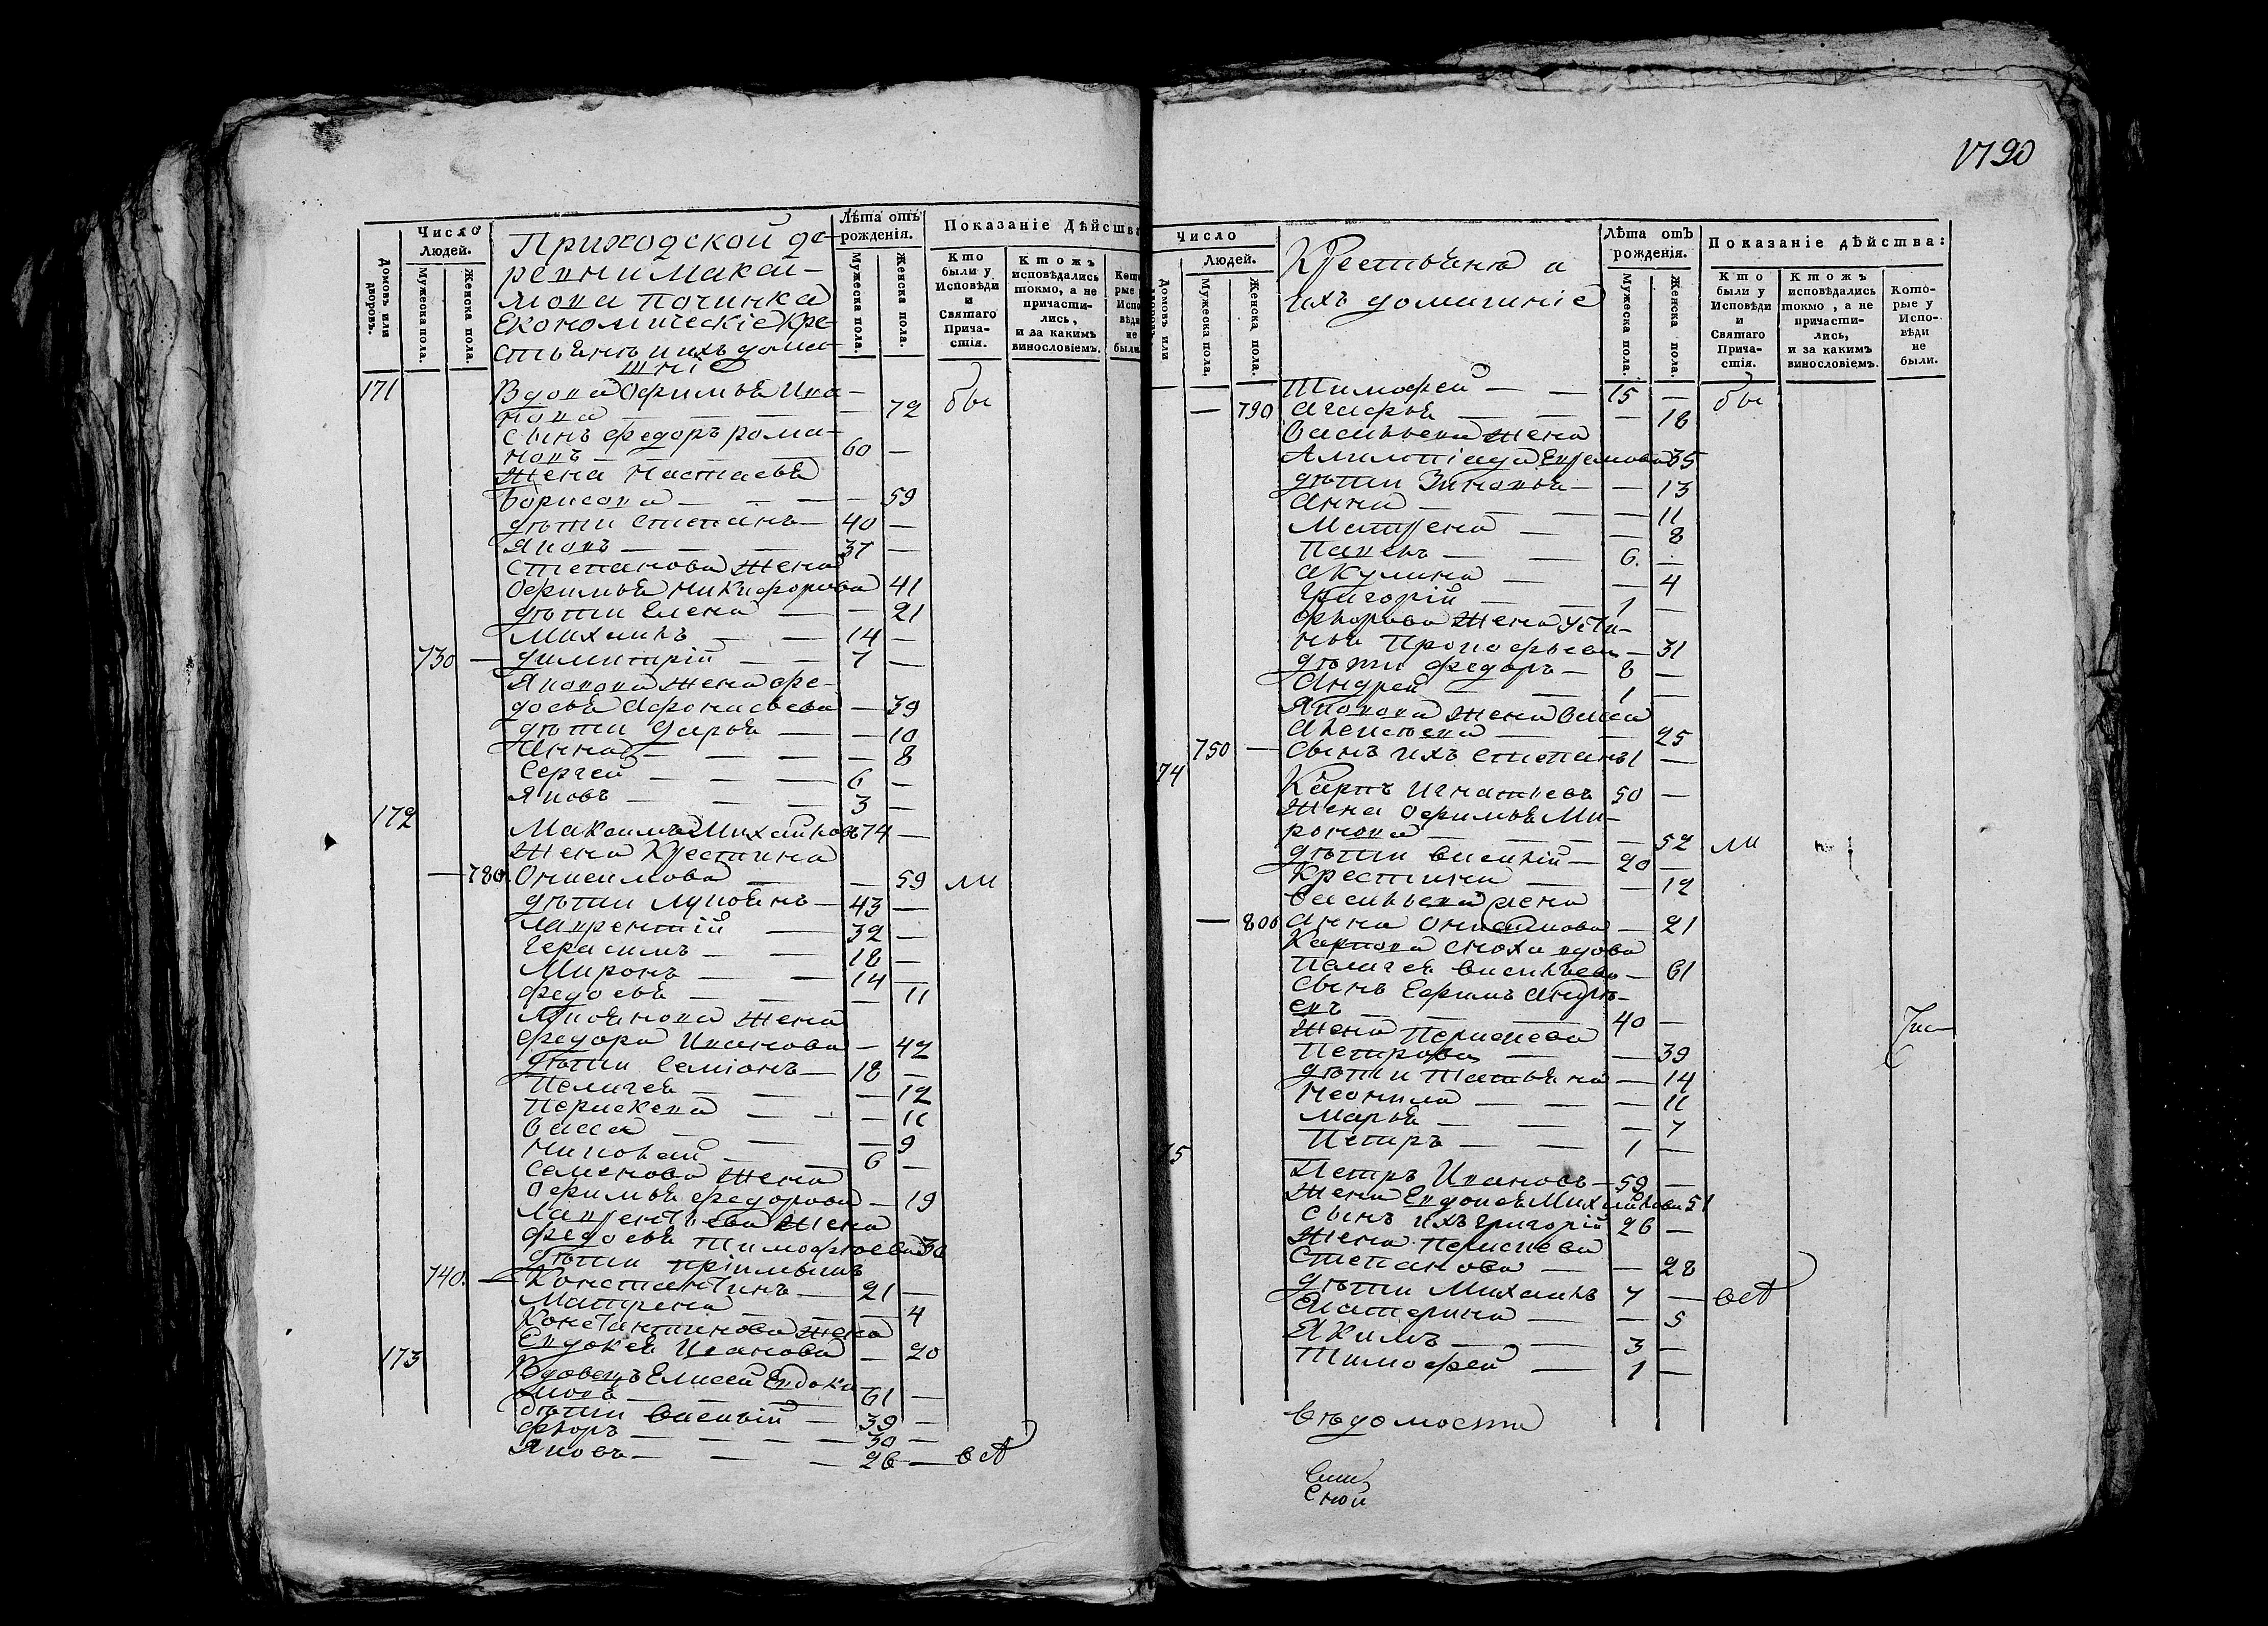 Число
Людей.
Домовъ или дворовъ.
Мужеска пола.
Женска пола.
Приходской де-
ревни Макси-
мова Починка
Економическіе Кре-
стьянѣ и ихъ дома-
шніе
Лѣта отъ рожденія.
Мужеска пола.
Женска пола.
Показаніе Дѣйства
Кто были у Исповѣди и Святаго Причастія.
Ктожъ исповѣдались токмо, а не причастились, и за какимъ винословіемъ.
171 Вдова Офимья Ива-
нова — — 72 бы
Сынъ Федоръ Рома-
новъ — 60 —
Жена Настасья
Борисова — — 59
дѣти Степанъ — 40 —
Яковъ — 37 —
Степанова Жена
Офимья Никифорова 41
дѣти Елена — — 21
Михаилъ — 14 —
730 — Димитрій — 7 —
Яковова Жена Фе-
досья Афонасьева — 39
дѣти Дарья — — 10
Анна — — 8
Сергей — 6 —
Яковъ — 3 —
172 Максимъ Михайловъ 74 —
Жена Крестина
— 780 Онисимова — 59 ли
дѣти Лукоянъ — 43 —
Лаврентій — 32 —
Герасимъ — 18 —
Миронъ — 14 —
Федосья — — 11
Лукоянова Жена
Федора Иванова — 42
дѣти Семіонъ — 18 —
Пелагея — — 12
Перасковa — — 11
Васса — — 9
Николай — 6 —
Семенова Жена
Офимья Федорова — 19
Лаврентьева Жена
Федосья Тимофѣева 36
дѣти пріимышъ
740. — Константинъ — 21 —
Матрена — — 4
Константинова Жена
Евдокея Иванова — 20
173 Вдовецъ Елисей Евдоки-
мовъ — 61 —
дѣти Василій — 39 —
Флоръ — 30 —
Яковъ — 26 — всѣ
1790
Число
Людей.
Домовъ или
Мужеска пола.
Женска пола.
Крестьянѣ и
ихъ домашніе
Лѣта отъ рожденія.
Мужеска пола.
Женска пола.
Показаніе дѣйства:
Кто были у Исповѣди и Святаго Причастія.
Ктожъ исповѣдались токмо, а не причастились, и за какимъ винословіемъ.
Которые у Исповѣди не были.
Тимофей — 15 — бы
— 790 Агафья — — 18
Васильева Жена
Амилпіада Ефремова 35
дѣти Зиновья — — 13
Анна — — 11
Матрена — — 8
Павелъ — 6. —
Акулина — — 4
Григорій — 1 —
Флорова Жена Усти-
нья Прокофьева — 31
дѣти Федоръ — 8 —
Андрей — 1 —
Яковова Жена Васса
Алексѣева — — 25
750 — Сынъ ихъ Степанъ 1 —
74 Карпъ Игнатьевъ 50 —
Жена Офимья Ми-
ронова — — 52 ли
дѣти Василій — 20 —
Крестина — — 12
Васильева жена
— 800 Анна Онисимова — 21
Карпова сноха вдова
Пелагея Васильева — 61
Сынъ Ефимъ Андре-
евъ — 40 —
Жена Перасковa
Петрова — — 39
дѣти Татьяна — 14
Неонила — — 11
Марья — — 7
Петръ — 1 —
75 Петръ Ивановъ — 59 —
Жена Евдокея Михайлова 51
Сынъ ихъ Григорій 26 —
Жена Перасковa
Степанова — — 28
дѣти Михаилъ 7 — всѣ
Екатерина — — 5
Якимъ — 3 —
Тимофей — 1 —
Вѣдомости